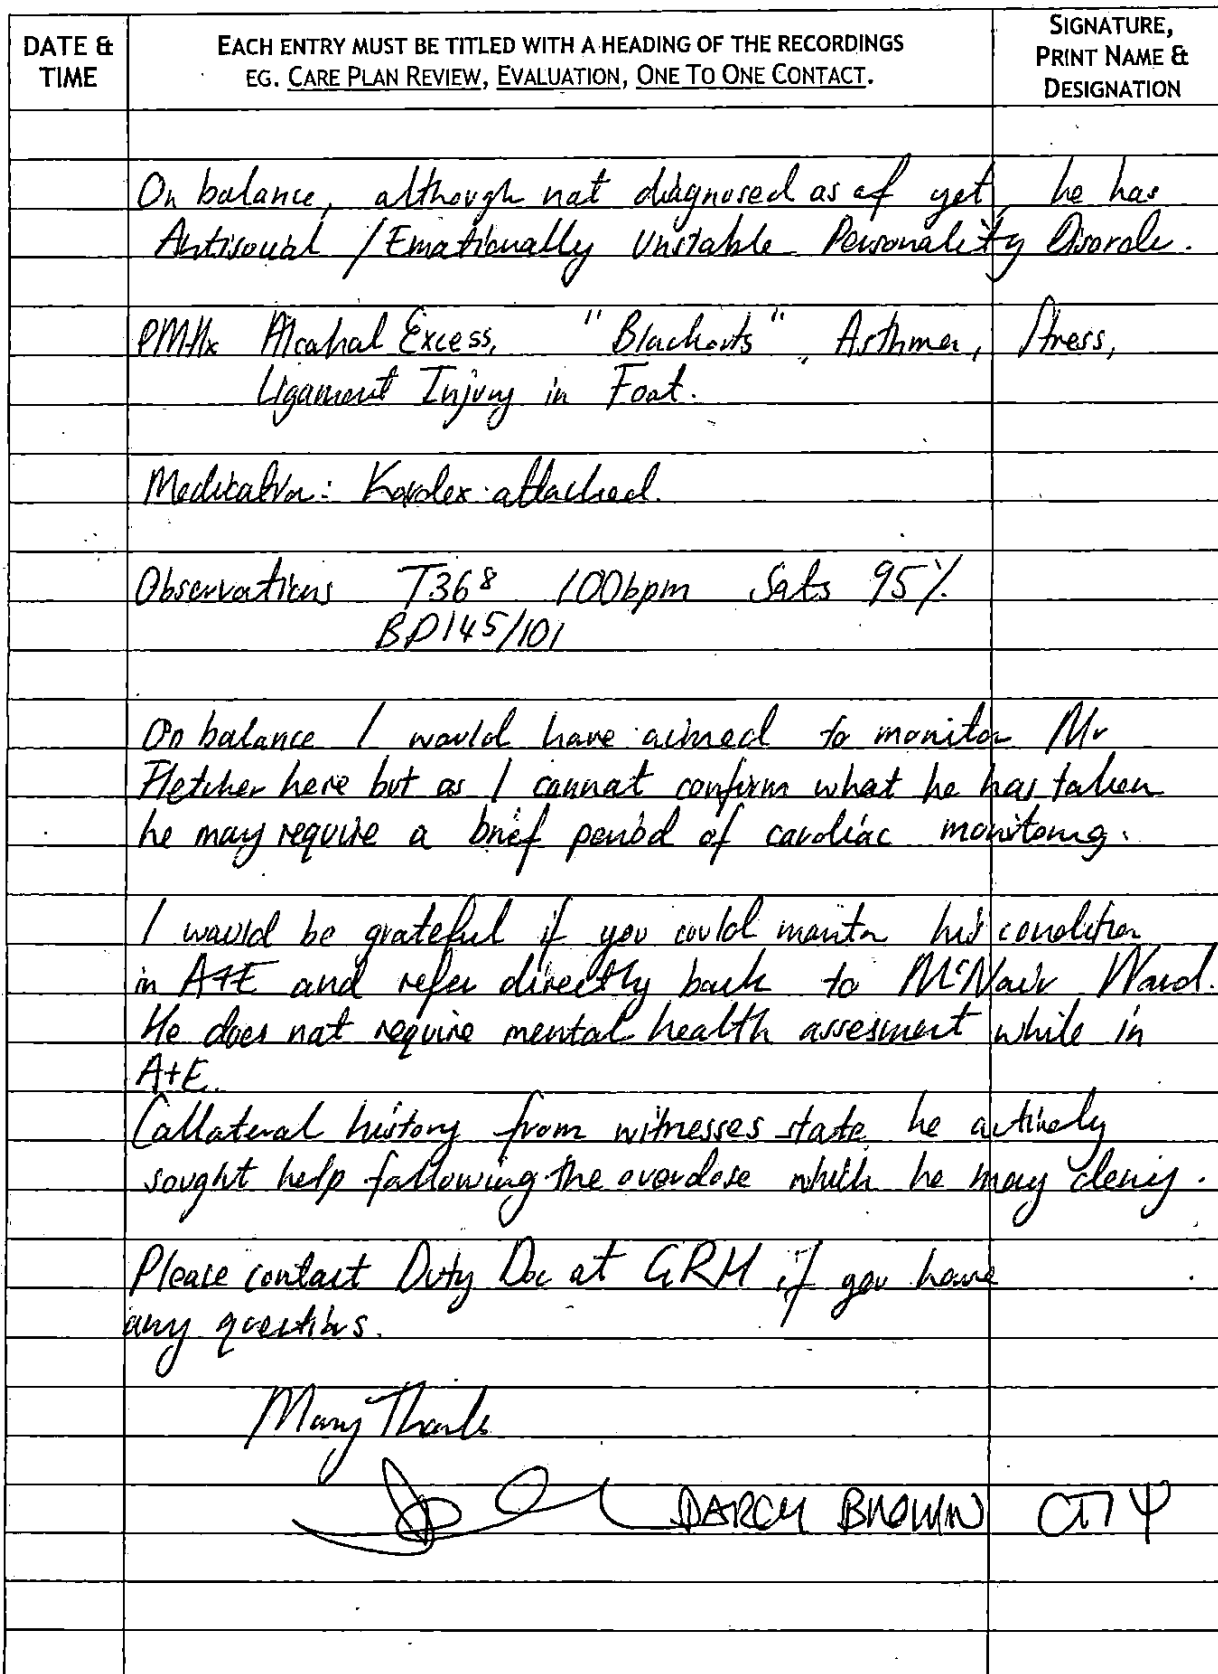 DATE & TIME
EACH ENTRY MUST BE TITLED WITH A HEADING OF THE RECORDINGS
EG. CARE PLAN REVIEW, EVALUATION, ONE TO ONE CONTACT.
SIGNATURE, PRINT NAME & DESIGNATION
On balance, although not diagnosed as of yet, he has
Antisocial / Emotionally Unstable Personality Disorde.
PMHx Alcohol Excess, "Blackouts", Asthma, Stress,
Ligament Injury in Foot.
Medication: Kardex attached.
Observations T36⁸ 100bpm Sats 95%
BP145/101
On balance I would have aimed to monitor Mr
Fletcher here but as I cannot confirm what he has taken
he may require a brief period of cardiac monitoring.
I would be grateful if you could monitor his condition
in A+E and refer directly back to McNair Ward.
He does not require mental health assesment while in
A+E.
Collateral history from witnesses state he actively
sought help following the overdose which he may deny.
Please contact Duty Doc at GRH if you have
any questions.
Many Thanks
DARCY BROWN